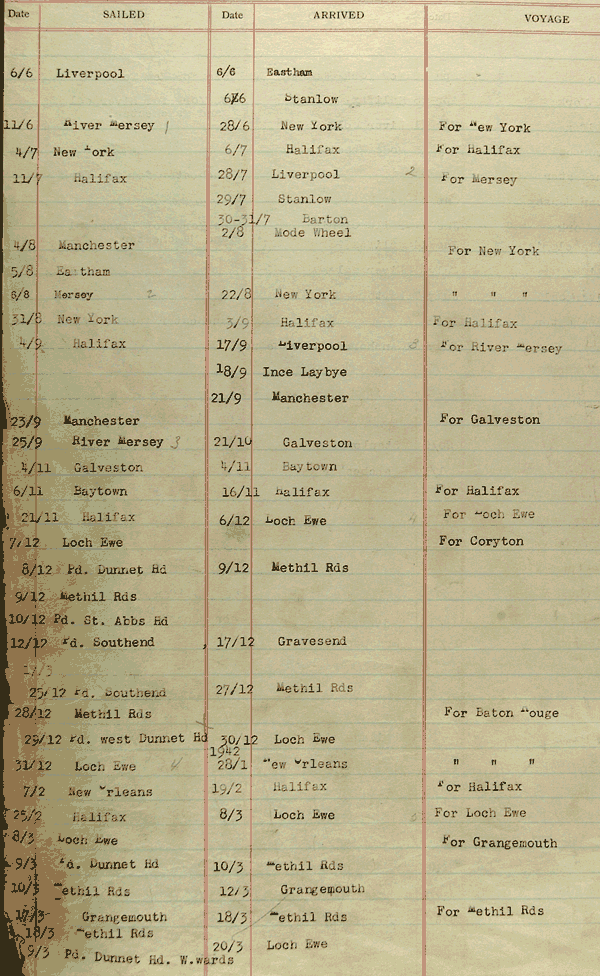 Date SAILED Date ARRIVED VOYAGE
6/6 Liverpool 6/6 Eastham
6/6 Stanlow
11/6 River Mersey 1 28/6 New York For New York
4/7 New York 6/7 Halifax For Halifax
11/7 Halifax 28/7 Liverpool 2 For Mersey
29/7 Stanlow
30-31/7 Barton
2/8 Mode Wheel
4/8 Manchester For New York
5/8 Eastham
6/8 Mersey 2 22/8 New York " " "
31/8 New York 3/9 Halifax For Halifax
4/9 Halifax 17/9 Liverpool 3 For River Mersey
18/9 Ince Laybye
21/9 Manchester
23/9 Manchester For Galveston
25/9 River Mersey 3 21/10 Galveston
4/11 Galveston 4/11 Baytown
6/11 Baytown 16/11 Halifax For Halifax
21/11 Halifax 6/12 Loch Ewe 4 For Loch Ewe
7/12 Loch Ewe For Coryton
8/12 Pd. Dunnet Hd 9/12 Methil Rds
9/12 Methil Rds
10/12 Pd. St. Abbs Hd
12/12 Pd. Southend , 17/12 Gravesend
25/12 Pd. Southend 27/12 Methil Rds
28/12 Methil Rds For Baton Rouge
29/12 Pd. west Dunnet Hd 30/12 Loch Ewe
1942
31/12 Loch Ewe 4 28/1 New Orleans " " "
7/2 New Orleans 19/2 Halifax For Halifax
25/2 Halifax 8/3 Loch Ewe For Loch Ewe
8/3 Loch Ewe For Grangemouth
9/3 Pd. Dunnet Hd 10/3 Methil Rds
10/3 Methil Rds 12/3 Grangemouth
17/3 Grangemouth 18/3 Methil Rds For Methil Rds
18/3 Methil Rds
9/3 Pd. Dunnet Hd. W.wards 20/3 Loch Ewe